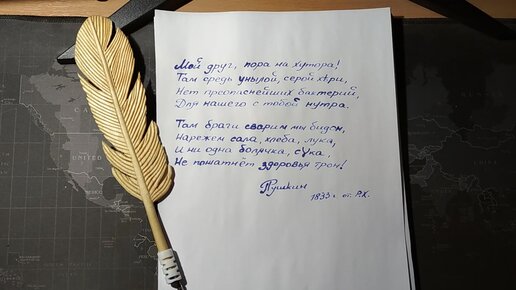 Мой друг, пора на хутора!
Там средь унылой, серой хери,
Нет преопаснейших бактерий,
Для нашего с тобой нутра.
Там браги сварим мы бидон,
Нарежем сала, хлеба, лука,
И ни одна болячка, сука,
Не пошатнёт здоровья трон!
Пушкин
1833 г. от Р.Х.